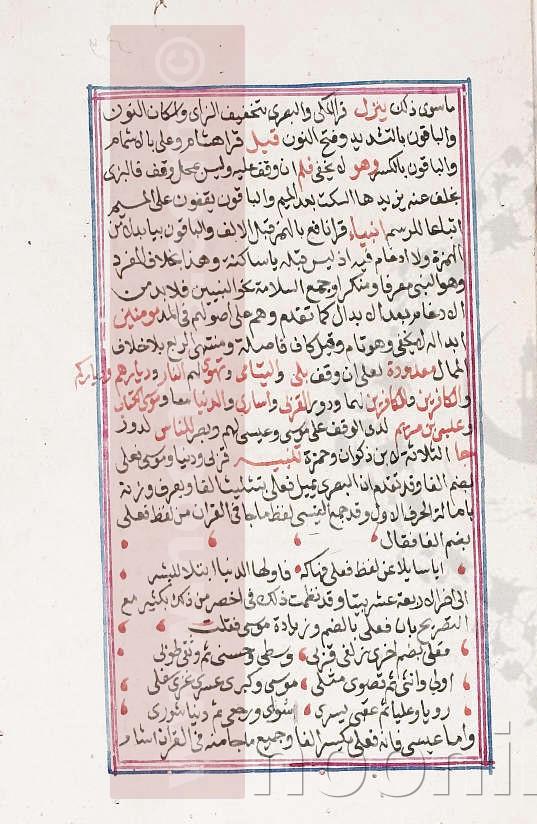 ما سوى ذلك ينزل قرا المكي والبصري بتخفيف الزاي واسكان النون
والباقون بالتشديد وفتح النون قيل قرا هشام وعلي بالاشمام
والباقون بالكسر وهو لا يخفى فلم ان وقف عليه وليس بمحل وقف فالبزي
بخلف عنه يزيد ها السكت بعد الميم والباقون يقفون على الميم
اتباعا للمرسوم انبياء قرا نافع بالهمز قبل الالف والباقون بيا بدلا من
الهمزة ولا ادغام فيه اذ ليس قبله يا ساكنة وهذا بخلاف المفرد
وهو النبي معرفا ومنكرا وجمع السلامة نحو النبيين فلا بد من
الادغام بعد الابدال كما تقدم وهم على اصولهم في المد مومنين
ابداله لا يخفى وهو تام وقيل كاف فاصلة ومنتهى الربع بلا خلاف
الممال معدودة لعلي ان وقف بلى واليتامى وتهوى لهم النار وديارهم ودياركم
والكافرين وللكافرين لهما ودور القربى واسارى والدنيا معا وموسى الكتاب
وعيسى بن مريم لدى الوقف على موسى وعيسى لهم وبصر للناس لدور
جا الثلاثة لابن ذكوان وحمزة تنبيه قربى ودنيا وموسى فعلى
بضم الفا وقد تقدم ان البصري يميل فعلى بتثليث الفا ويعرف وزنه
بامالة الحرف الاول وقد جمع القيسي لفظ ما جا في القران من لفظ فعلى
بضم الفا فقال
ايا سايلا عن لفظ فعلى فهاكه فاولها الدنيا ابتلا للبشر
الى اخر الاربعة عشر بيتا وقد نظمت ذلك في اخصر من ذلك بكثير مع
التصريح بان فعلى بالضم وزيادة موسى فقلت
وفعلى بضم اخرى زلفى قربى وسطى وحسنى ثم وثقى طوبى
اولى وانثى ثم قصوى مثلى موسى وكبرى عسرى عزى سفلى
رويا وعليا ثم عقبى يسرى شورى ورجعى ثم دنيا
واما عيسى فانه فعلى بكسر الفا وجميع ما جا منه في القران اشار
noonl